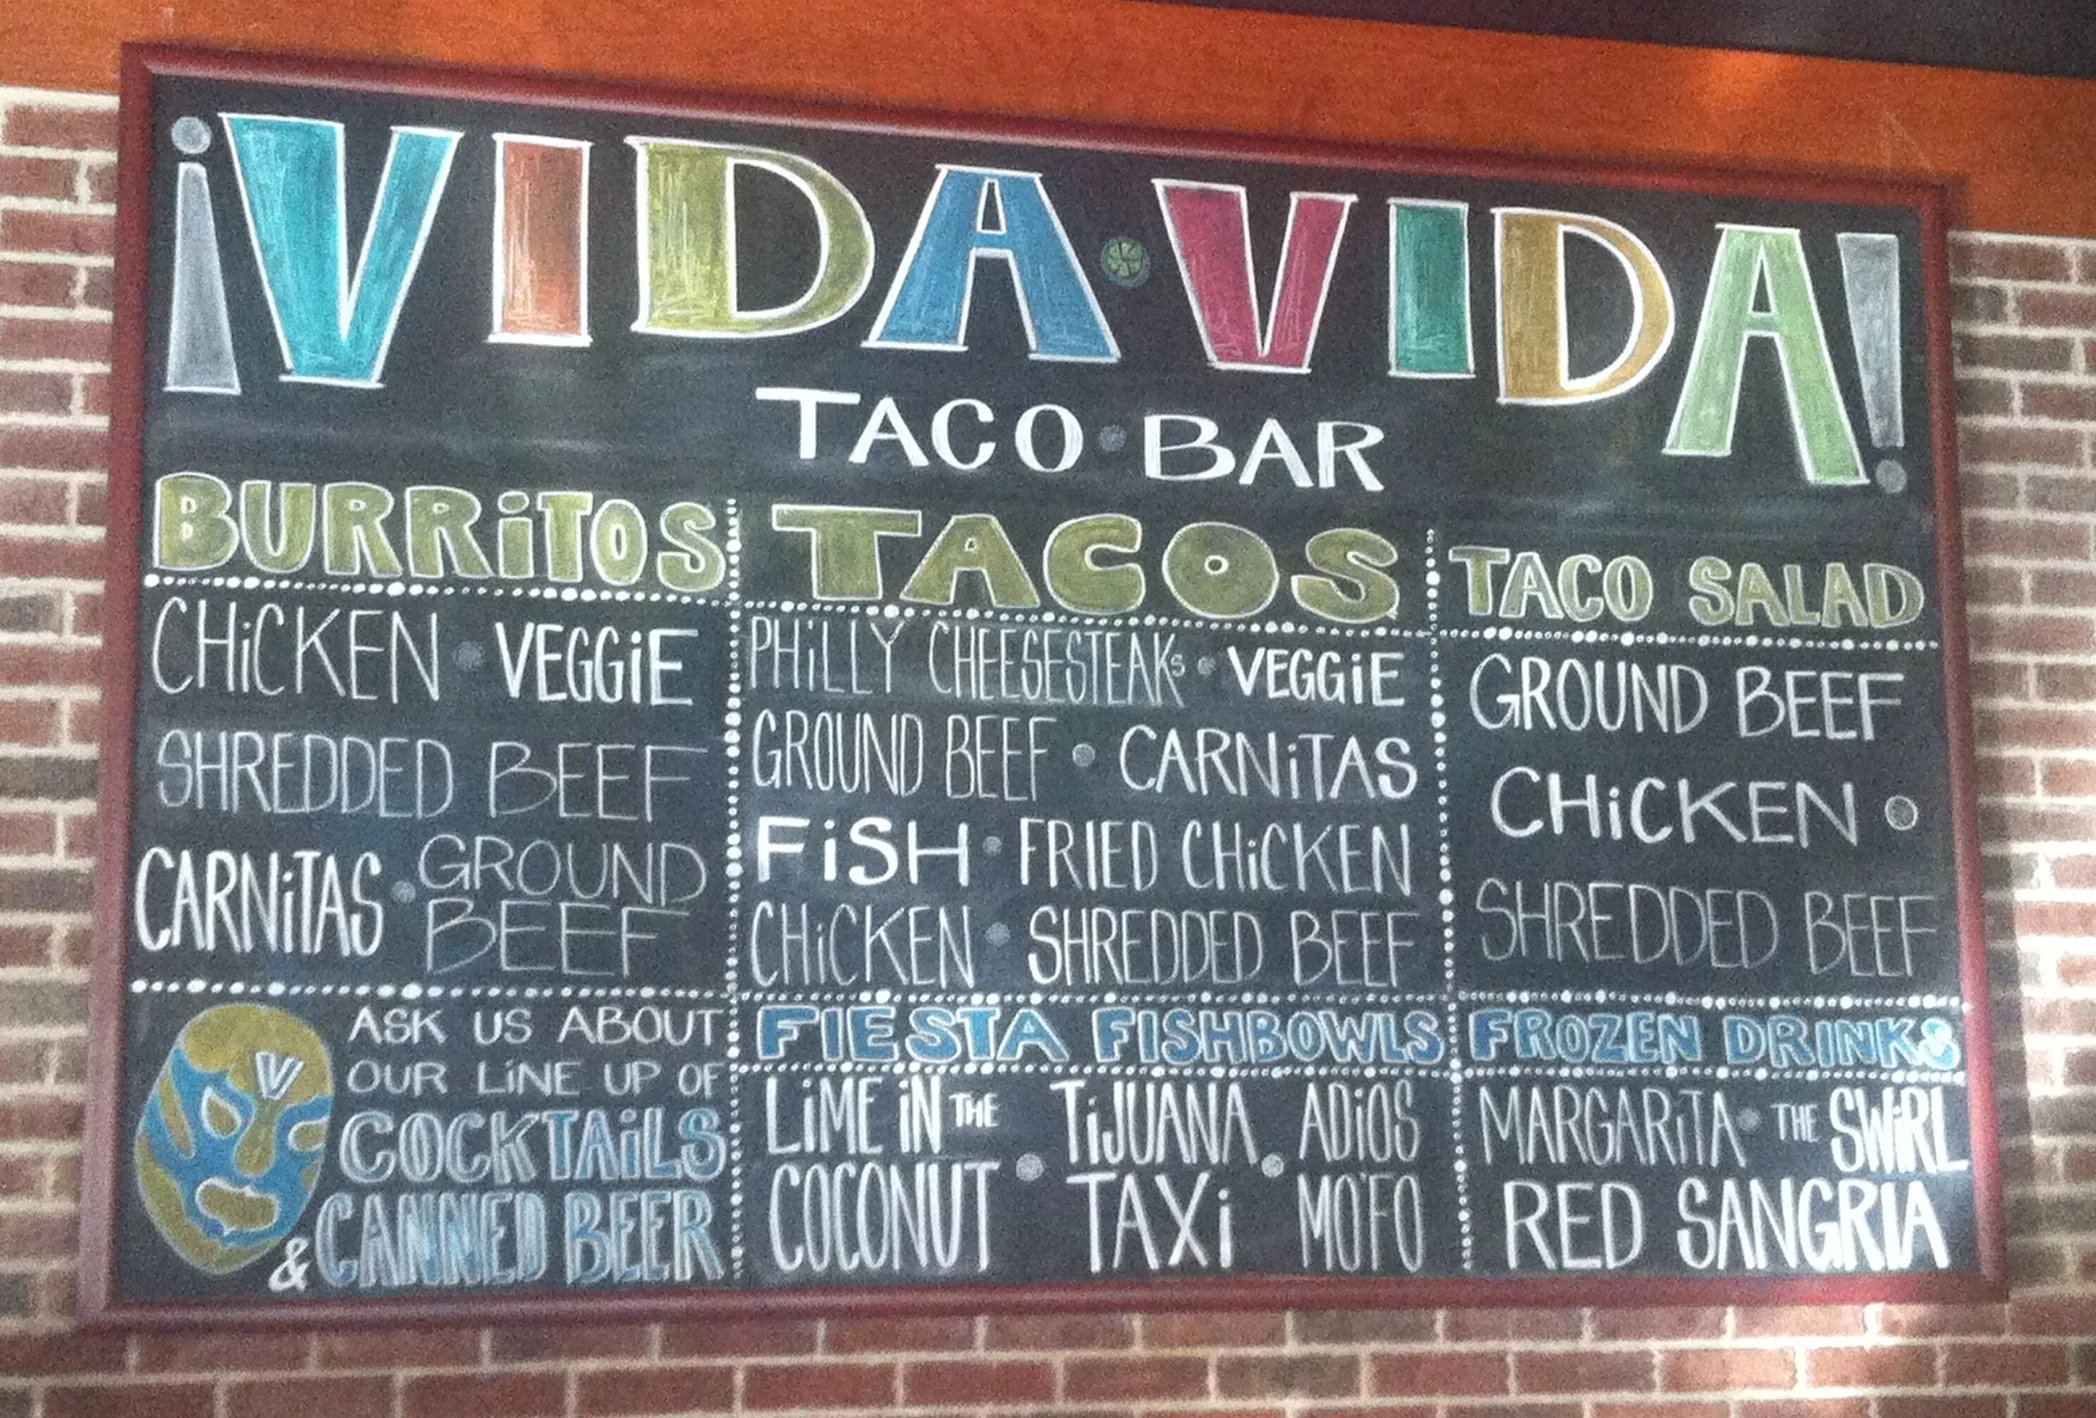 ¡VIDA·VIDA!
TACO·BAR
BURRiTOS
CHiCKEN · VEGGiE
SHREDDED BEEF
CARNiTAS · GROUND
BEEF
TACOS
PHiLLY CHEESESTEAKs · VEGGiE
GROUND BEEF · CARNiTAS
FiSH · FRIED CHiCKEN
CHiCKEN · SHREDDED BEEF
TACO SALAD
GROUND BEEF
CHiCKEN ·
SHREDDED BEEF
V
ASK US ABOUT
OUR LiNE UP OF
COCKTAiLS
& CANNED BEER
FIESTA FISHBOWLS
LiME iN THE
COCONUT ·
TiJUANA
TAXi ·
ADiOS
MO'FO
FROZEN DRINKS
MARGARiTA · THE SWiRL
RED SANGRIA